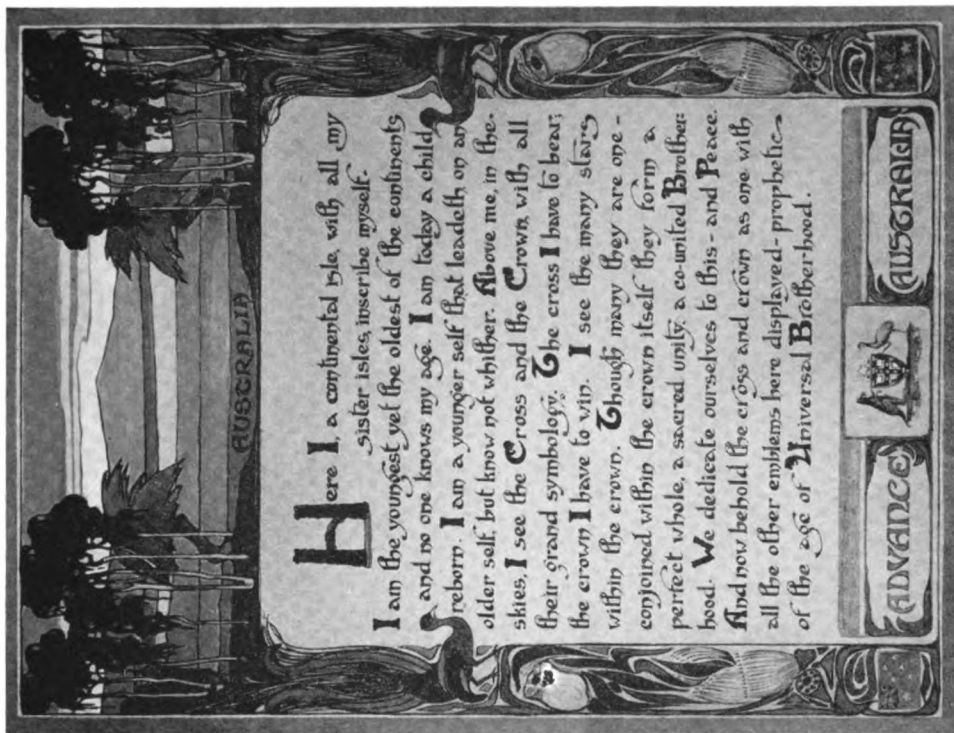 AUSTRALIA
Here I, a continental isle, with all my
sister isles, inscribe myself.
I am the youngest yet the oldest of the continents
and no one knows my age. I am today a child
reborn. I am a younger self that leadeth on an
older self, but know not whither. Above me, in the
skies, I see the Cross and the Crown with all
their grand symbology. The cross I have to bear;
the crown I have to win. I see the many stars
within the crown. Though many they are one-
conjoined within the crown itself they form a
perfect whole, a sacred unity, a co-united Brother-
hood. We dedicate ourselves to this- and Peace.
And now behold the cross and crown as one with
all the other emblems here displayed- prophetic
of the age of Universal Brother-hood.
ADVANCE AUSTRALIA